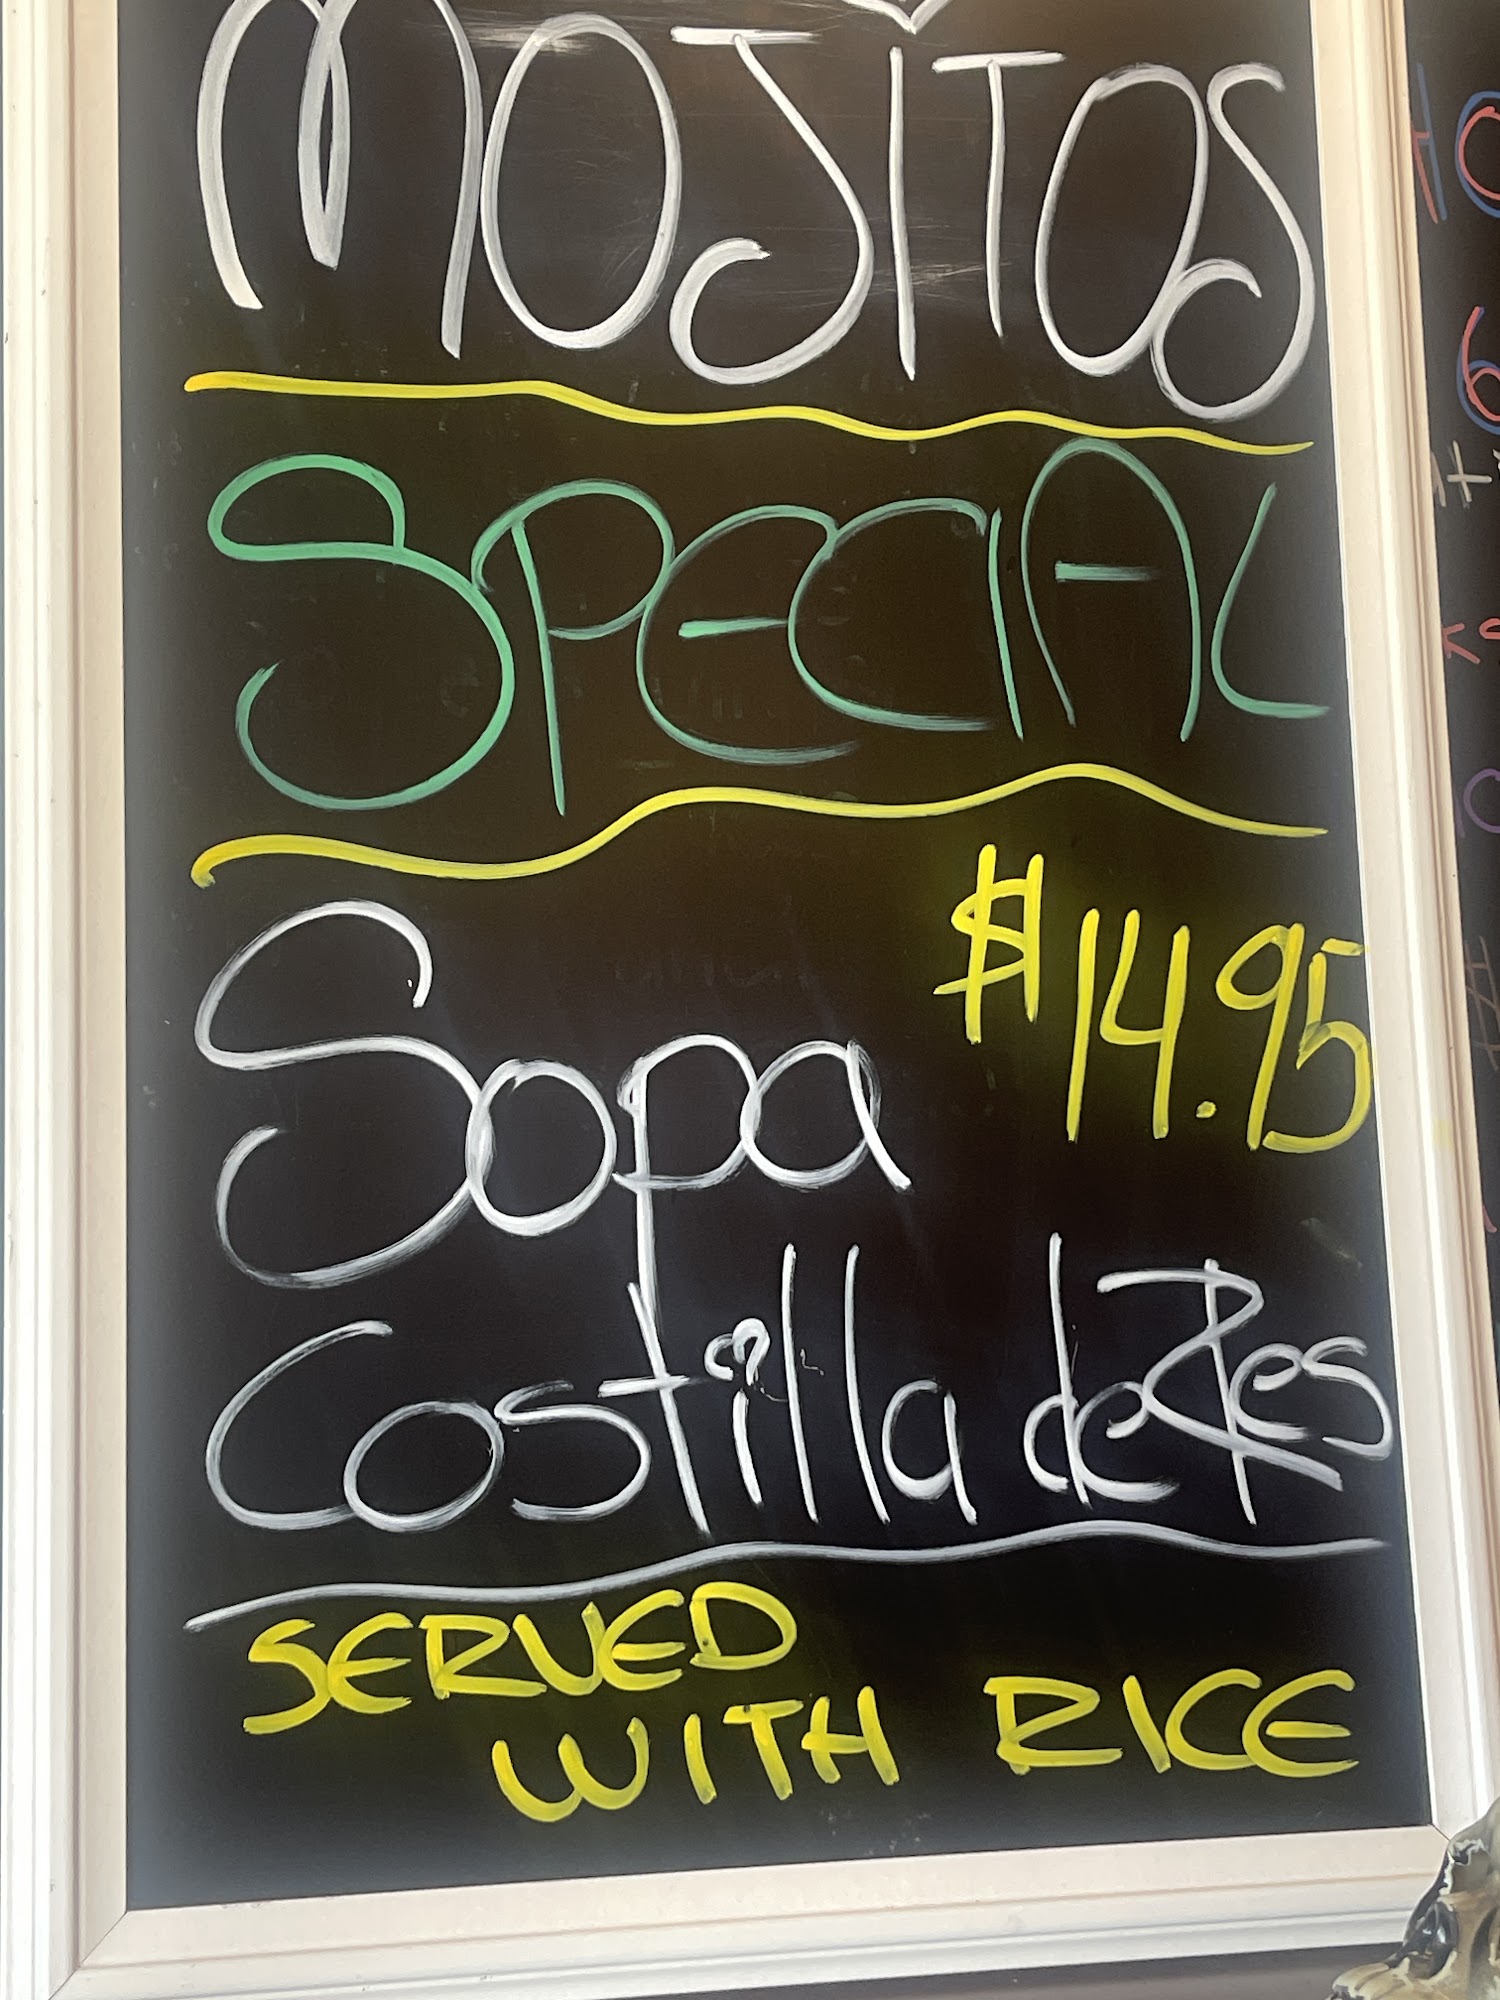 MOJITOS
SPECIAL
$14.95
Sopa
Costilla de Res
SERVED
WITH RICE